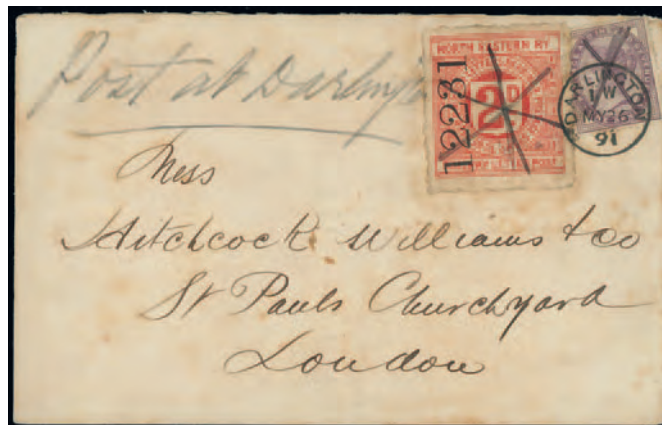 Post at Darling
NORTH EASTERN RY
12231
2D
POST
DARLINGTON
MY 26
91
Mess
Hitchcock Williams & Co
St Pauls Churchyard
London